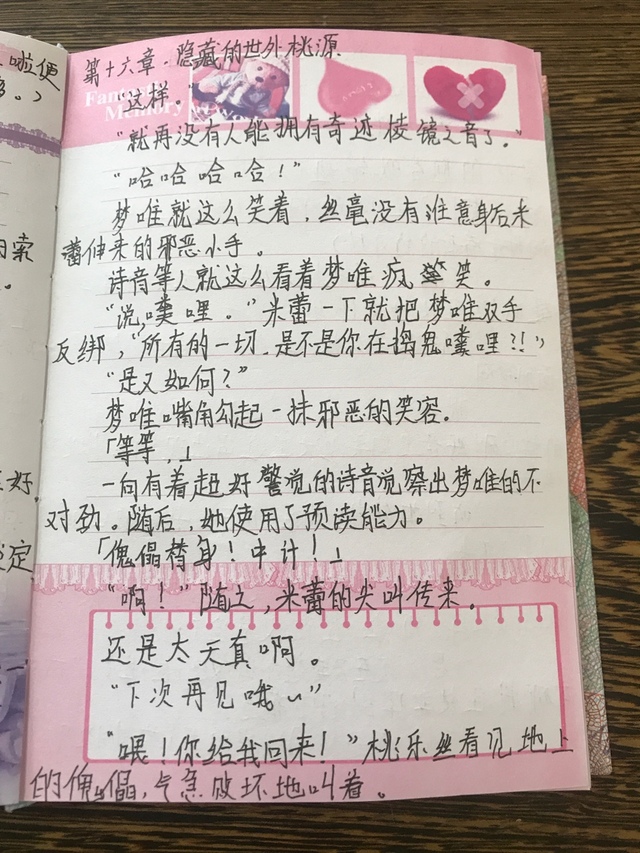 啦便
多。）
第十六章. 隐藏的世外桃源
Fantastic
Memory
“这样。”
“就再没有人能拥有奇迹棱镜之音了。”
“哈哈哈哈！”
梦唯就这么笑着，丝毫没有注意身后米
蕾伸来的邪恶小手。
诗音等人就这么看着梦唯疯笑。
“说，喽哩。”米蕾一下就把梦唯双手
反绑，“所有的一切，是不是你在搞鬼喽哩？！”
“是又如何？”
梦唯嘴角勾起一抹邪恶的笑容。
「等等，」
一向有着超好警觉的诗音觉察出梦唯的不
对劲。随后，她使用了预读能力。
「傀儡替身！中计！」
“啊！”随之，米蕾的尖叫传来。
还是太天真啊。
“下次再见哦～”
“喂！你给我回来！”桃乐丝看见地上
的傀儡，气急败坏地叫着。
索
好
定